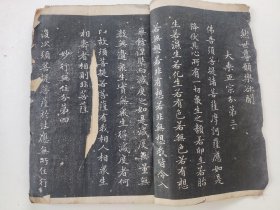 然世尊願樂欲聞
大乘正宗分第三
佛告須菩提諸菩薩摩訶薩應如是
降伏其心所有一切眾生之類若卵生若胎
生若濕生若化生若有色若無色若有想
若無想若非有想若非無想我皆令入
無餘涅槃而滅度之如是滅度無量無
數無邊眾生實無眾生得滅度者何
以故須菩提若菩薩有我相人相眾生
相壽者相即非菩薩
妙行無住分第四
復次須菩提菩薩於法應無所住行